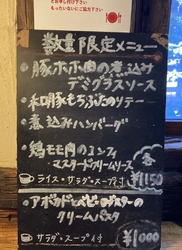 とお申し付け下さい
もったいないにご協力下さい
数量限定メニュー
・豚ホホ肉の煮込み
デミグラスソース
・和豚もちぶたのソテー
・煮込みハンバーグ
・鶏モモ肉のコンフィ
マスタードクリームソース
各
ライス・サラダ・スープ付 ¥1150
・アボカドとベビーホタテの
クリームパスタ
サラダ・スープ付 ¥1000